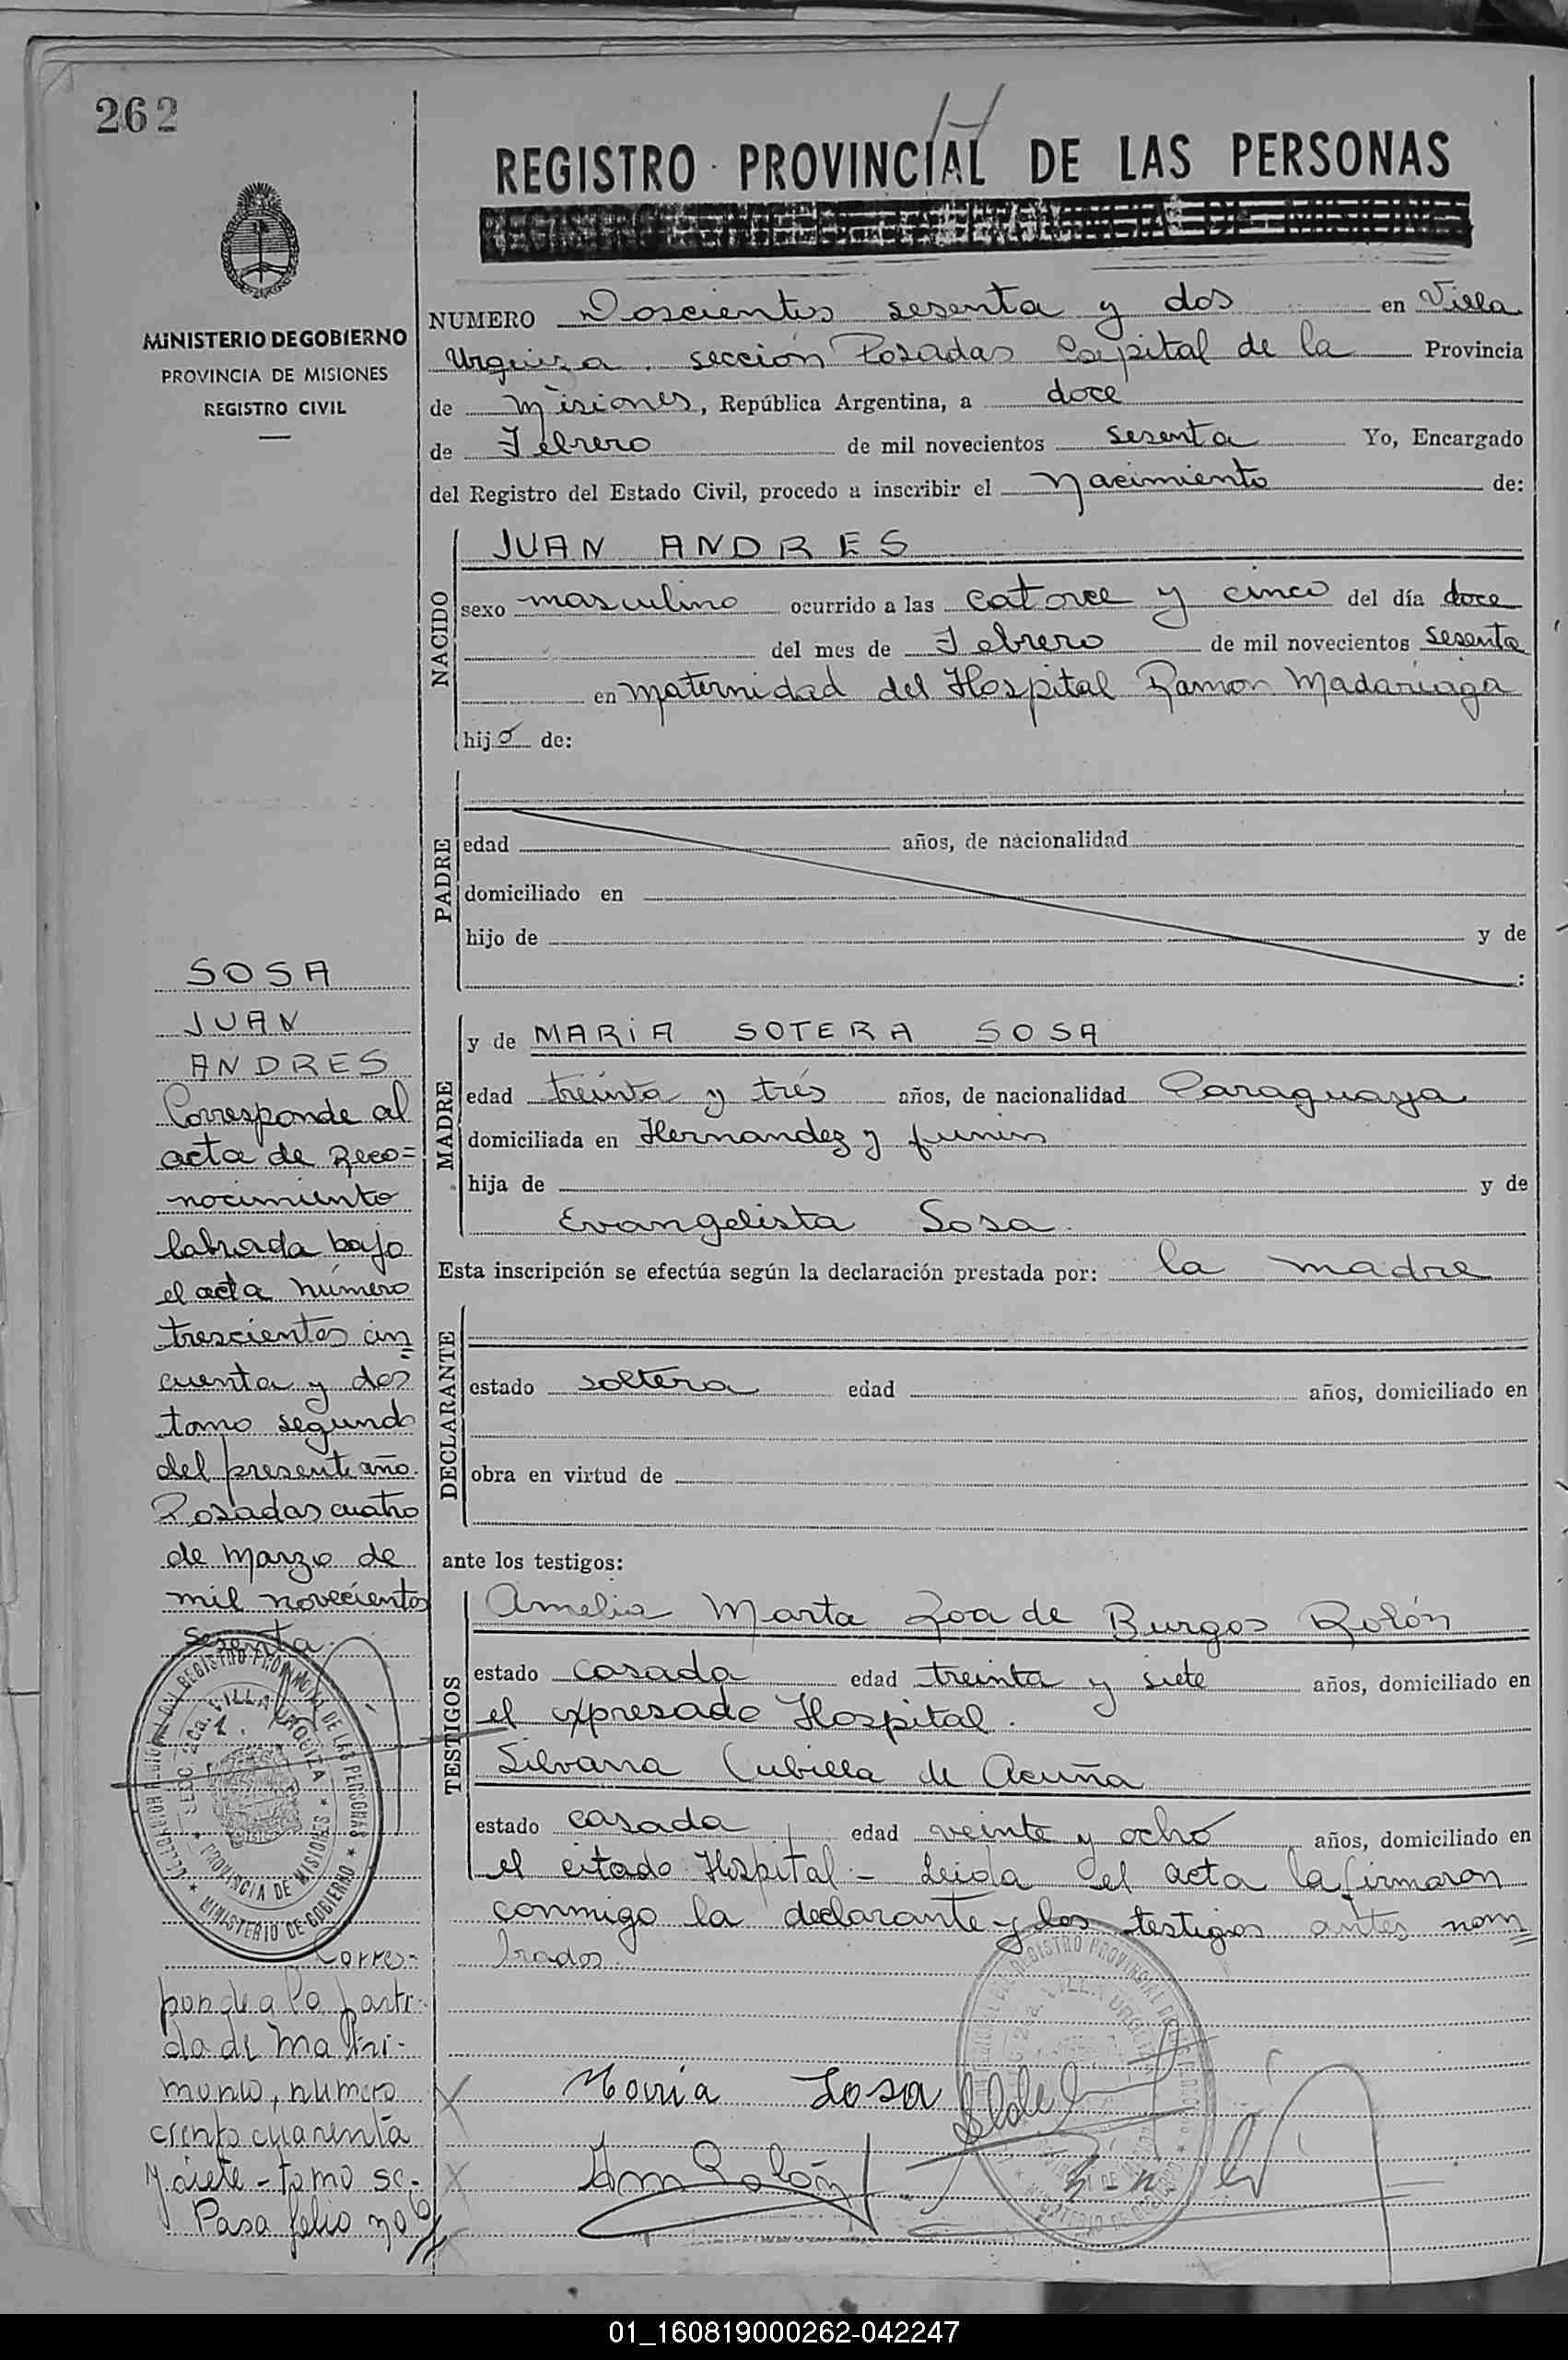 262
REGISTRO PROVINCIAL DE LAS PERSONAS
MINISTERIO DE GOBIERNO
PROVINCIA DE MISIONES
REGISTRO CIVIL
NUMERO Doscientos sesenta y dos en Villa
Urquiza. sección Posadas Capital de la Provincia
de Misiones, República Argentina, a doce
de Febrero de mil novecientos sesenta Yo, Encargado
del Registro del Estado Civil, procedo a inscribir el Nacimiento de:
NACIDO
JUAN ANDRES
sexo masculino ocurrido a las catorce y cinco del día doce
del mes de Febrero de mil novecientos sesenta
en Maternidad del Hospital Ramon Madariaga
hijo de:
PADRE
edad años, de nacionalidad
domiciliado en
hijo de y de
:
MADRE
y de MARIA SOTERA SOSA
edad treinta y tres años, de nacionalidad Paraguaya
domiciliada en Hernandez y Junin
hija de y de
Evangelista Sosa.
Esta inscripción se efectúa según la declaración prestada por: la madre
DECLARANTE
estado soltera edad años, domiciliado en
obra en virtud de
ante los testigos:
TESTIGOS
Amelia Marta Roa de Burgos Rolón
estado casada edad treinta y siete años, domiciliado en
el expresado Hospital.
Silvana Cubilla de Acuña
estado casada edad veinte y ocho años, domiciliado en
el citado Hospital - Leida el acta la firmaron
conmigo la declarante y los testigos antes nom=
brados.
Maria Sosa
Rolón
SOSA
JUAN
ANDRES
Corresponde al
acta de Reco=
nocimiento
labrada bajo
el acta número
trescientos cin=
cuenta y dos
tomo segundo
del presente año.
Posadas cuatro
de Marzo de
mil novecientos
sesenta.
REGISTRO PROVINCIAL DE LAS PERSONAS
VILLA URQUIZA
PROVINCIA DE MISIONES
MINISTERIO DE GOBIERNO
Corres-
ponde a la parti-
da de Matri-
monio, numero
ciento cuarenta
y siete - tomo se-
Pasa folio no
01_160819000262-042247